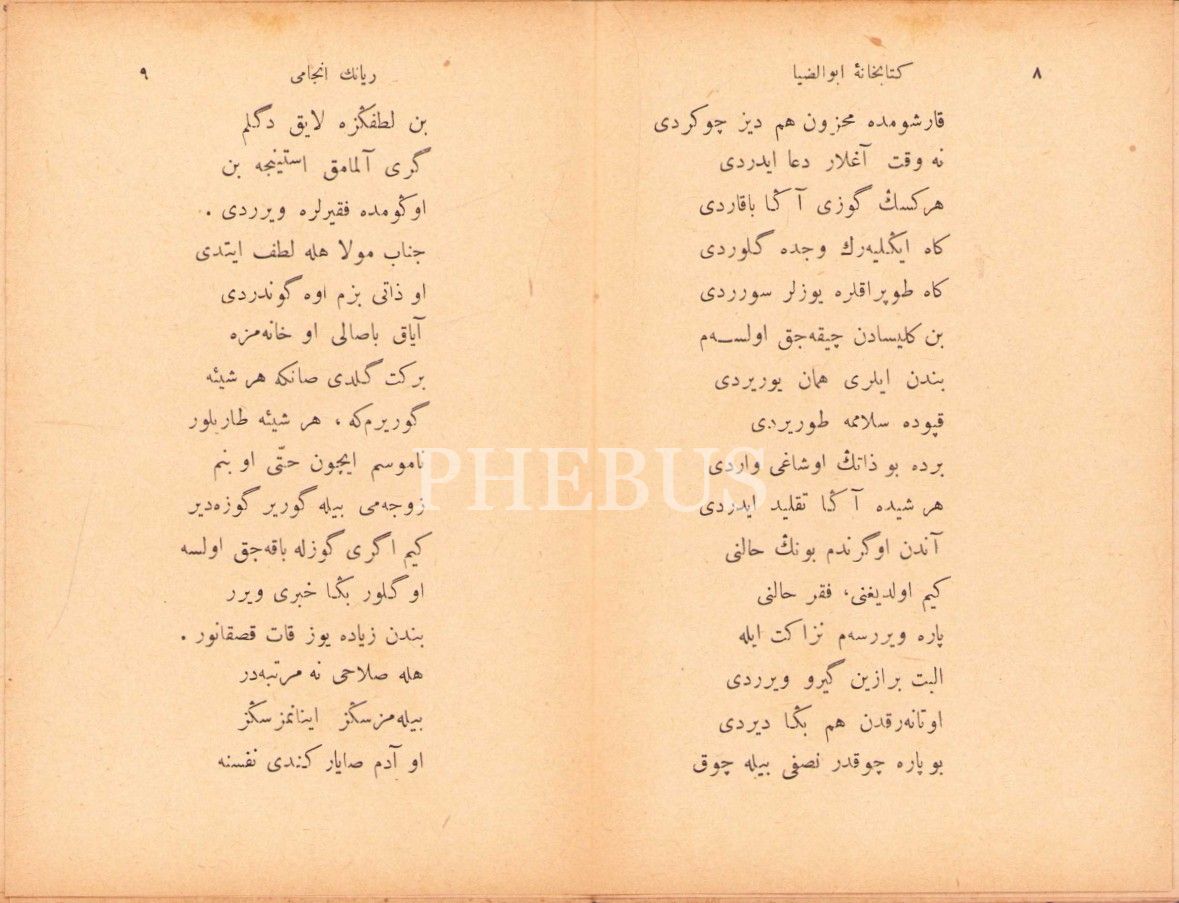 ٨
كتابخانهٔ ابوالضيا
قارشومده محزون هم ديز چوكردى
نه وقت آغلار دعا ايدردى
هركسڭ گوزى آڭا باقاردى
كاه ايڭليه‌رك وجده گلوردى
كاه طوپراقلره يوزلر سوردى
بن كليسادن چيقه‌جق اولســه‌م
بندن ايلرى همان يوريردى
قپوده سلامه طوريردى
برده بو ذاتڭ اوشاغى واردى
هر شيده آڭا تقليد ايدردى
آندن اوگرندم بونڭ حالنى
كيم اولديغنى، فقر حالنى
پاره ويررسه‌م نزاكت ايله
البت برازين گيرو ويرردى
اوتانه‌رقدن هم بڭا ديردى
بو پاره چوقدر نصفى بيله چوق
ريانك انجامى
٩
بن لطفڭزه لايق دگلم
گرى آلمامق استينجه بن
اوڭومده فقيرلره ويرردى .
جناب مولا هله لطف ايتدى
او ذاتى بزم اوه گوندردى
آياق باصالى او خانه‌مزه
بركت گلدى صانكه هر شيئه
گوريرم‌كه ، هر شيئه طاريلور
ناموسم ايچون حتّى او بنم
زوجه‌مى بيله گورير گوزه‌دير
كيم اگرى گوزله باقه‌جق اولسه
او گلور بڭا خبرى ويرر
بندن زياده يوز قات قصقانور .
هله صلاحى نه مرتبه‌در
بيله‌مزسڭز اينانمزسڭز
او آدم صايار كندى نفسنه
PHEBUS